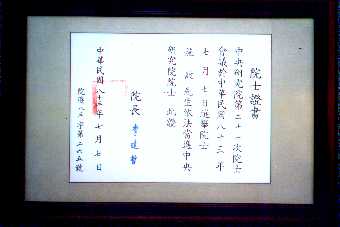 院士證書
中央研究院第二十一次院士
會議於中華民國八十三年
七月七日選舉院士
施敏先生依法當選中央
研究院院士 此證
院長 李遠哲
中華民國八十三年七月七日
院證八三字第二六五號